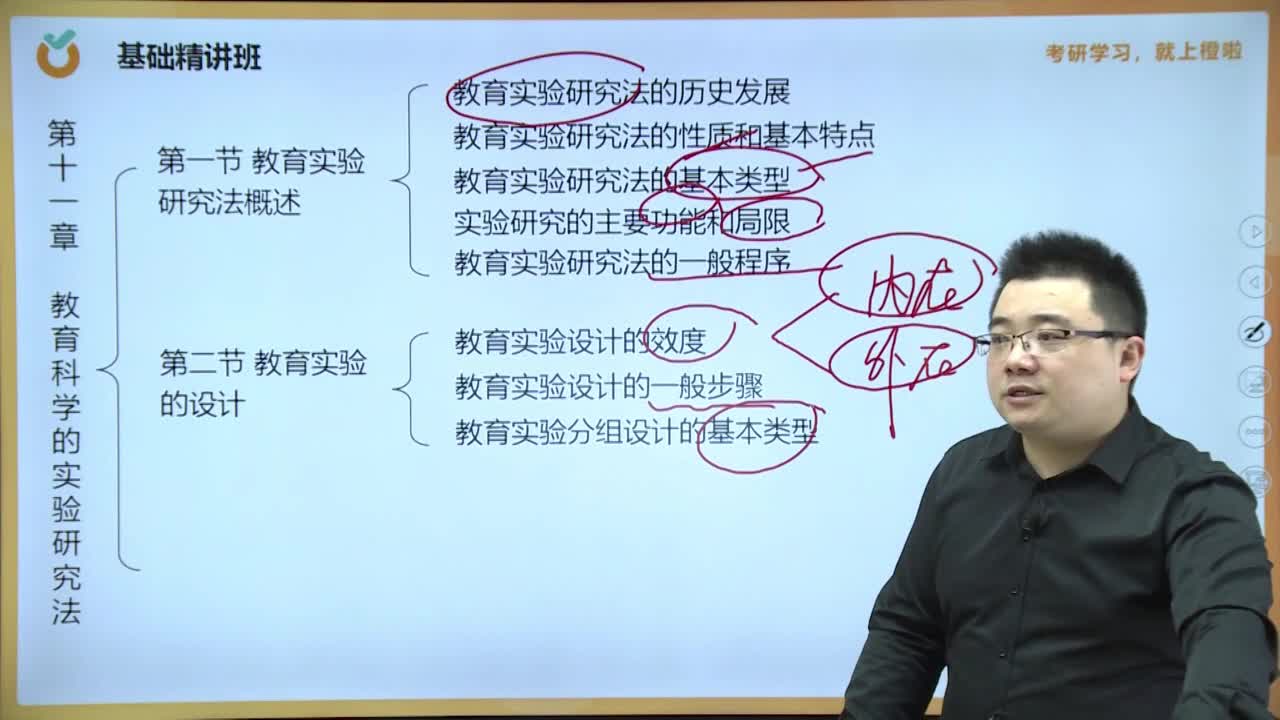 基础精讲班
考研学习，就上橙啦
第十一章 教育科学的实验研究法
第一节 教育实验
研究法概述
教育实验研究法的历史发展
教育实验研究法的性质和基本特点
教育实验研究法的基本类型
实验研究的主要功能和局限
教育实验研究法的一般程序
内在
外在
第二节 教育实验
的设计
教育实验设计的效度
教育实验设计的一般步骤
教育实验分组设计的基本类型